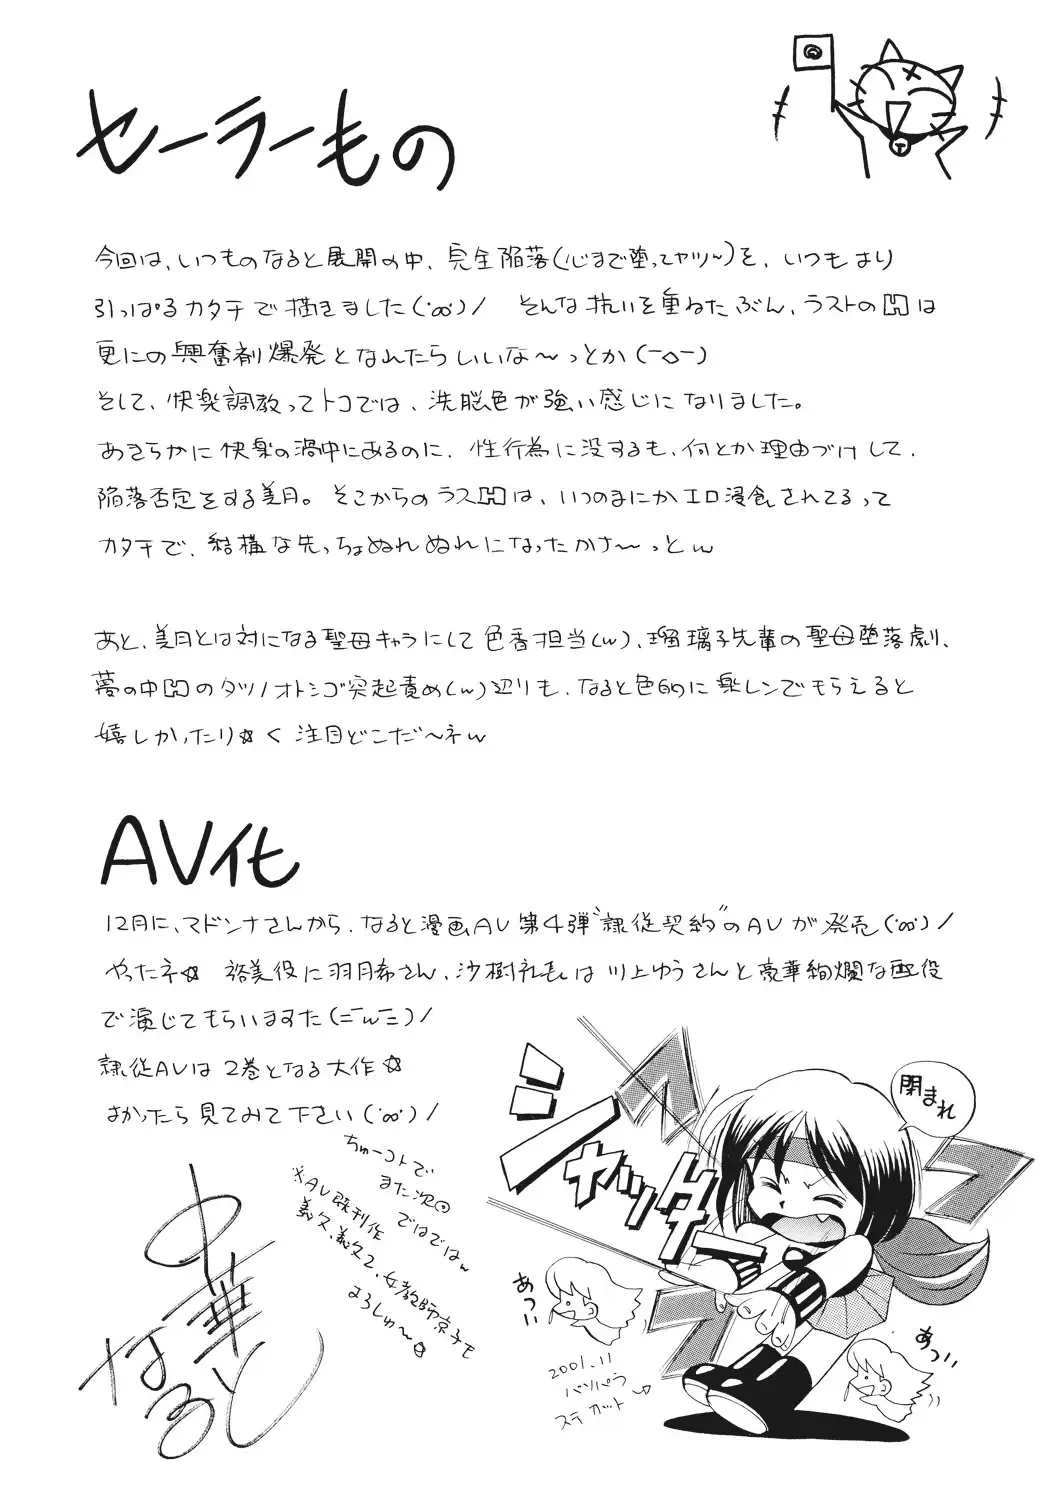 セーラーもの
今回は、いつものなると展開の中、完全陥落(心まで堕ってヤツ〜)を、いつもより
引っぱるカタチで描きました(˙ꈊ˙)/ そんな抗いを重ねたぶん、ラストのHは
更にの興奮剤爆発となれたらいいな〜っとか(ー◇ー)
そして、快楽調教ってトコでは、洗脳色が強い感じになりました。
あきらかに快楽の渦中にあるのに、性行為に没するも、何とか理由づけして、
陥落否定をする美月。そこからのラスHは、いつのまにかエロ浸食されてるって
カタチで、結構な先っちょぬれぬれになったかさ〜っとw
あと、美月とは対になる聖母キャラにして色香担当(w)、瑠璃子先輩の聖母堕落劇、
夢の中Hのタツノオトシゴ突起責め(w)辺りも、なると色的に楽しんでもらえると
嬉しかったり☆く注目どこだ〜ネw
AV化
12月に、マドンナさんから、なると漫画AV第4弾"隷従契約"のAVが発売(˙ꈊ˙)/
やったネ☆ 裕美役に羽月希さん、沙樹は川上ゆうさんと豪華絢爛な配役
で演じてもらいますた(=ˉωˉ=)/
隷従AVは2巻となる大作☆
よかったら見てみて下さい(˙ꈊ˙)/
ちゅーコトで
また次回
ではではw
※AV既刊作
義父、義父2、女教師京子も
よろしゅ〜☆
中華
なると
シャッター
閉まれ
あっつい
あっつい
2001.11
バンパラ
ステカット